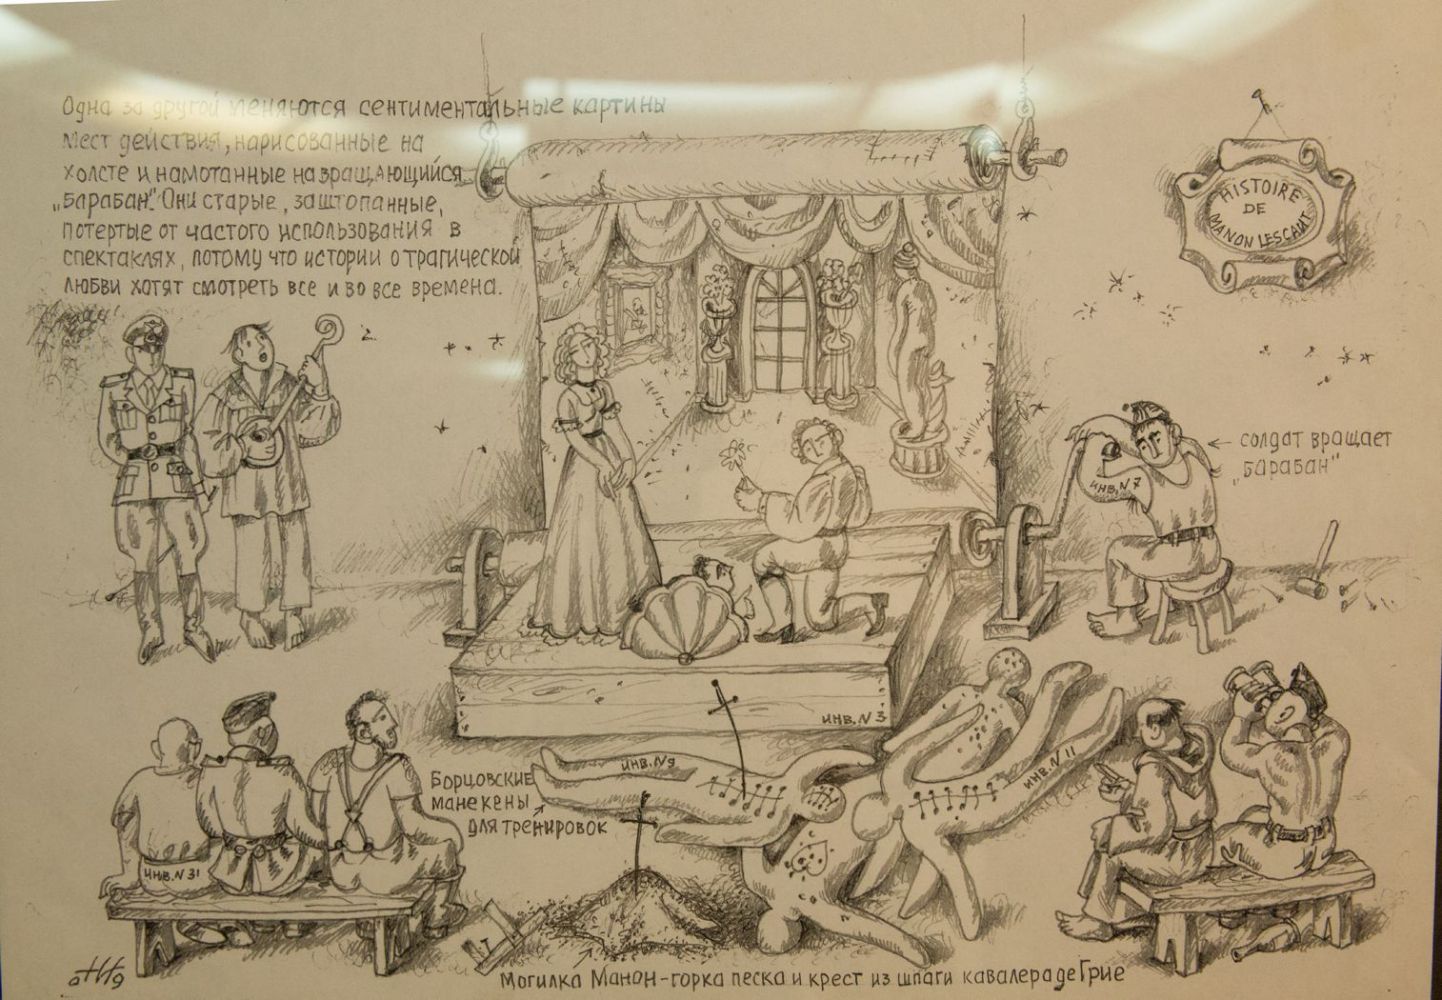 Одна за другой меняются сентиментальные картины
мест действия, нарисованные на
холсте и намотанные на вращающийся
„барабан". Они старые, заштопанные,
потертые от частого использования в
спектаклях, потому что истории о трагической
любви хотят смотреть все и во все времена.
HISTOIRE
DE
MANON LESCAUT
← солдат вращает
„барабан"
ИНВ. N 7
ИНВ. N 3
ИНВ. N 9
ИНВ. N 11
Борцовские
манекены
для тренировок
ИНВ. N 31
Могилка Манон - горка песка и крест из шпаги кавалера де Грие